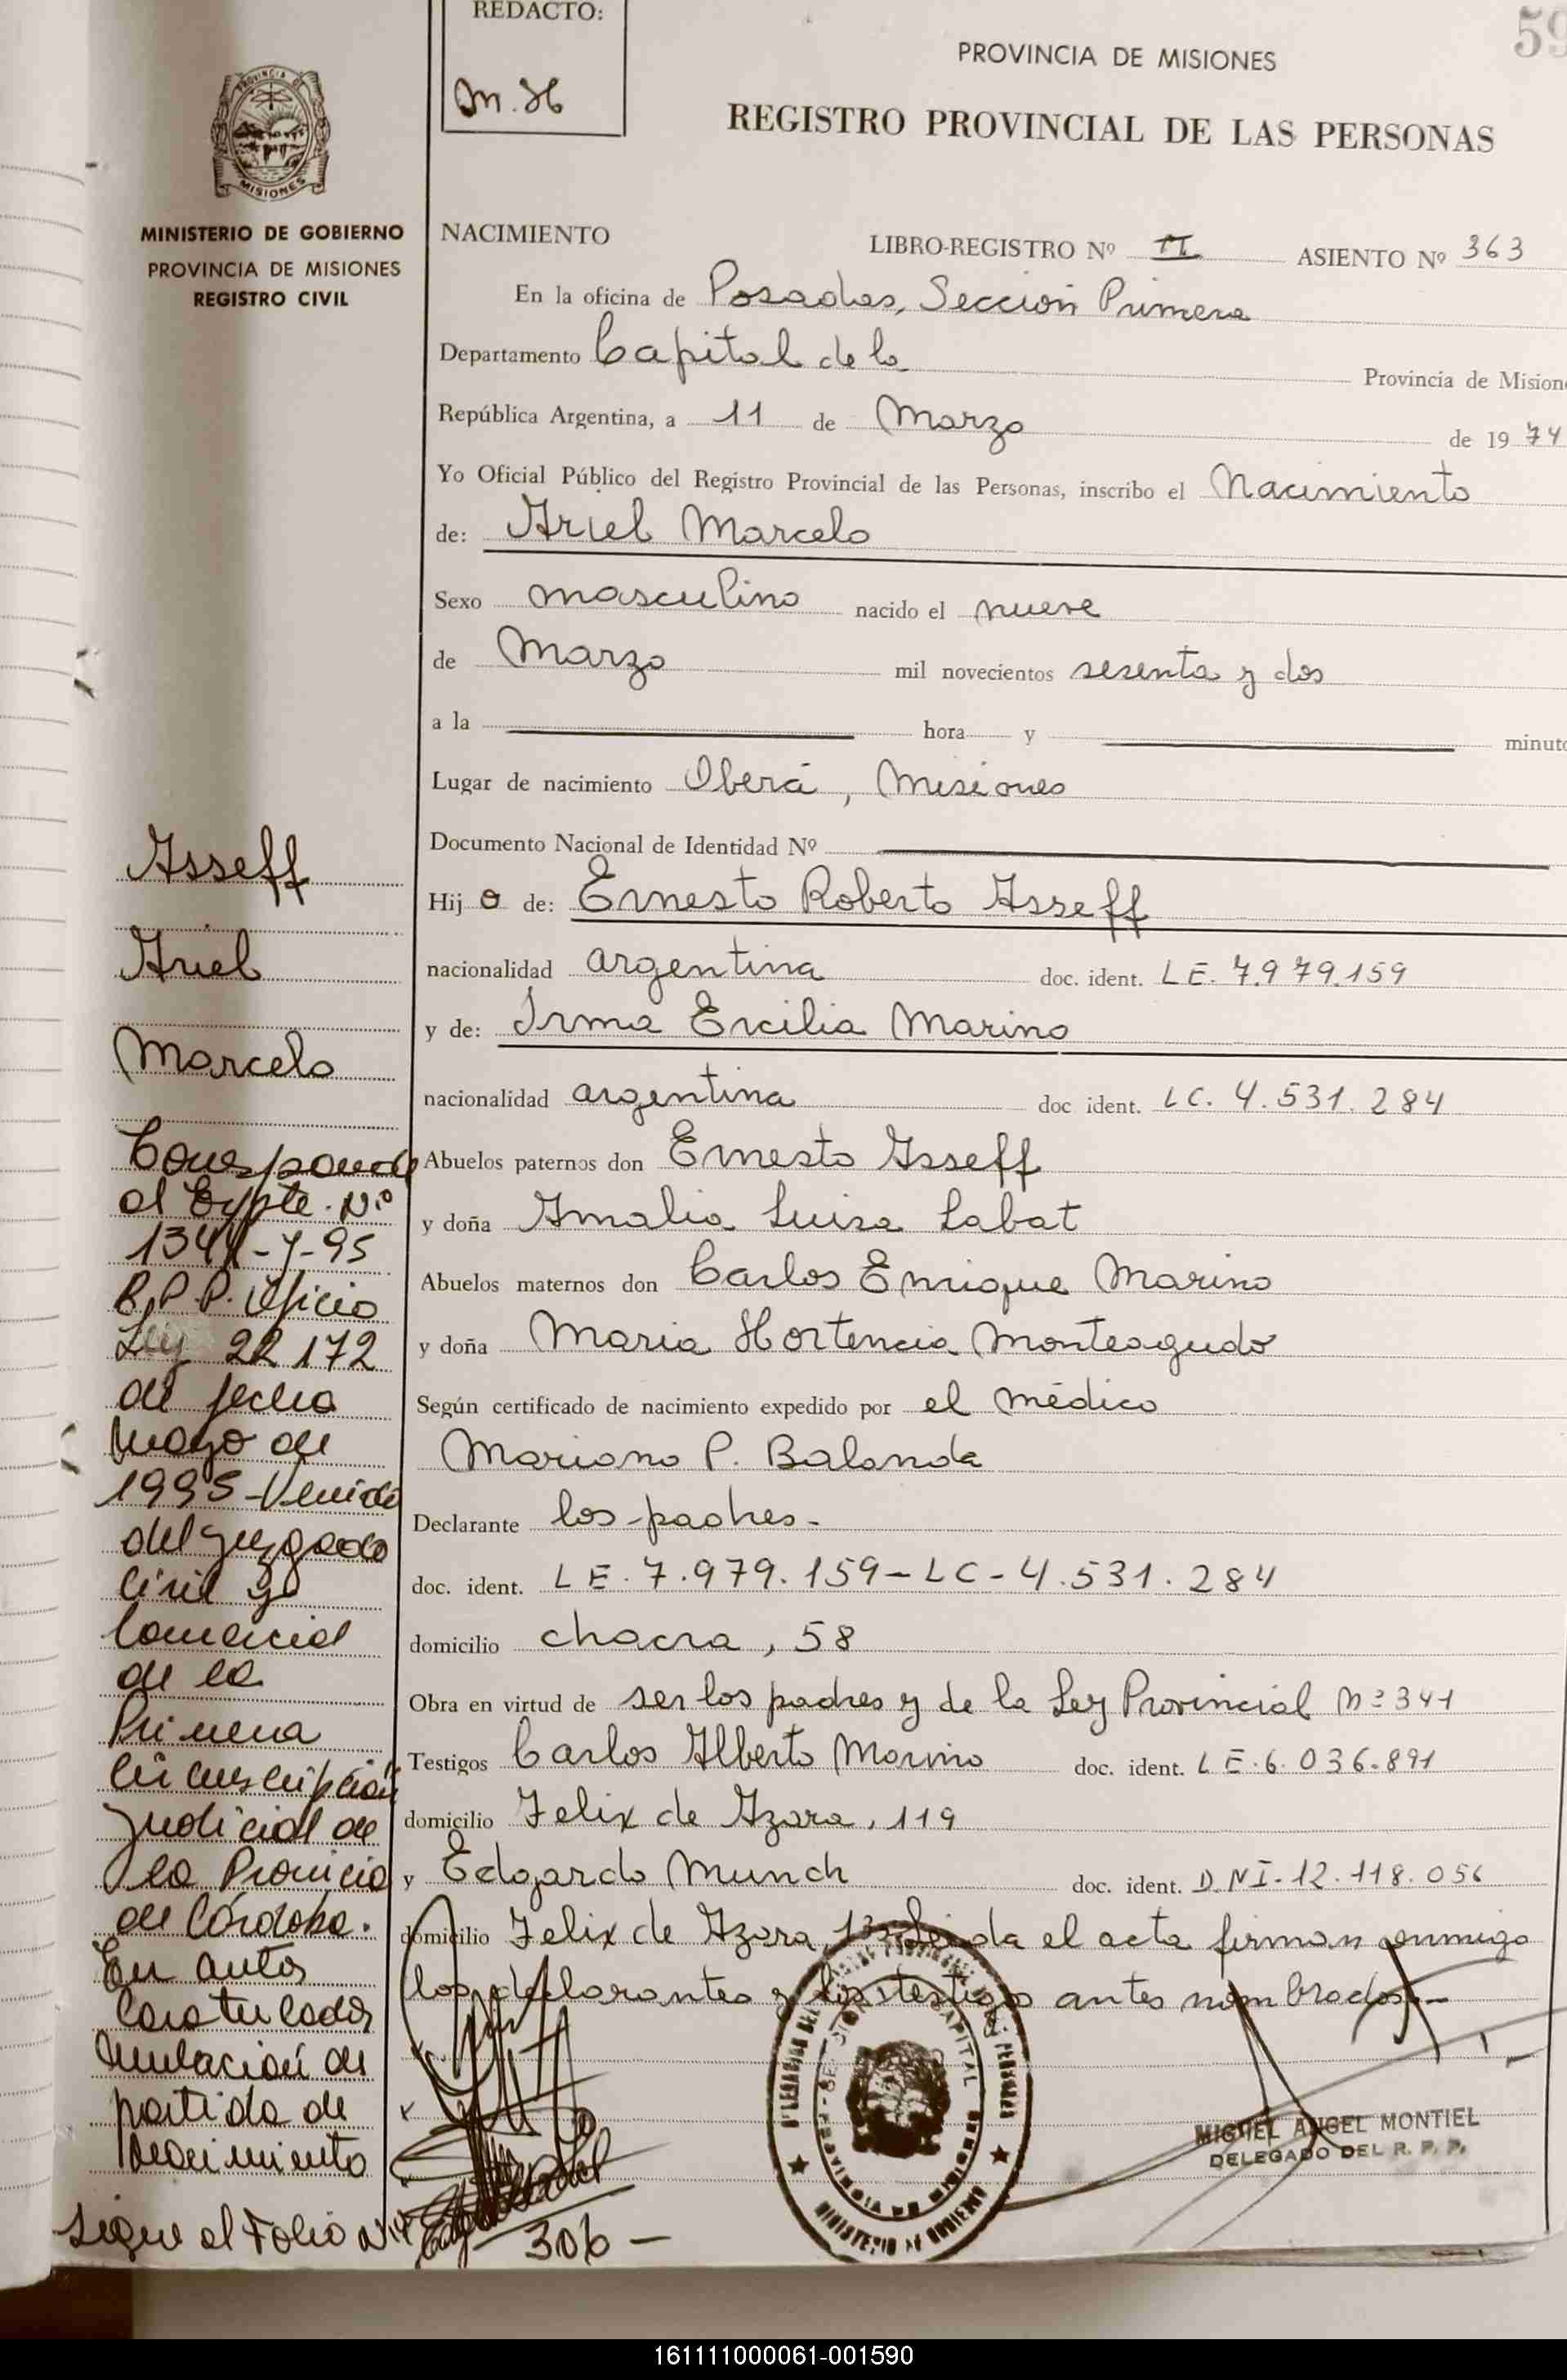 59
REDACTO:
M.H
PROVINCIA DE MISIONES
REGISTRO PROVINCIAL DE LAS PERSONAS
PROVINCIA DE
MISIONES
MINISTERIO DE GOBIERNO
PROVINCIA DE MISIONES
REGISTRO CIVIL
NACIMIENTO LIBRO-REGISTRO Nº II ASIENTO Nº 363
En la oficina de Posadas, Sección Primera
Departamento Capital de la Provincia de Mision
República Argentina, a 11 de Marzo de 1974
Yo Oficial Público del Registro Provincial de las Personas, inscribo el Nacimiento
de: Ariel Marcelo
Sexo masculino nacido el nueve
de Marzo mil novecientos sesenta y dos
a la hora y minuto
Lugar de nacimiento Oberá, Misiones
Documento Nacional de Identidad Nº
Hijo de: Ernesto Roberto Asseff
nacionalidad argentina doc. ident. LE. 7.979.159
y de: Irma Ercilia Marino
nacionalidad argentina doc ident. LC. 4.531.284
Abuelos paternos don Ernesto Asseff
y doña Amalia Luisa Labat
Abuelos maternos don Carlos Enrique Marino
y doña Maria Hortencia Monteagudo
Según certificado de nacimiento expedido por el médico
Mariano P. Balanda
Declarante los padres.
doc. ident. LE. 7.979.159-LC-4.531.284
domicilio chacra, 58
Obra en virtud de ser los padres y de la Ley Provincial Nº 341
Testigos Carlos Alberto Marino doc. ident. LE.6.036.891
domicilio Felix de Azara, 119
y Edgardo Munch doc. ident. D.NI-12.118.056
domicilio Felix de Azara, Leida el acta firman conmigo
los declarantes y los testigos antes nombrados.-
Asseff
Ariel
Marcelo
Corresponde
al Expte. Nº
-95
R.P.P. Oficio
Ley 22172
de fecha
Mayo de
1995-Venido
del Juzgado
Civil y
Comercial
de la
Primera
Circunscripción
Judicial de
la Provincia
de Córdoba.
En autos
Caratulados
Anulación de
partida de
Nacimiento
Sigue al Folio Nº
306 -
CAPITAL
MINISTERIO DE GOBIERNO
MIGUEL ANGEL MONTIEL
DELEGADO DEL R. P. P.
161111000061-001590